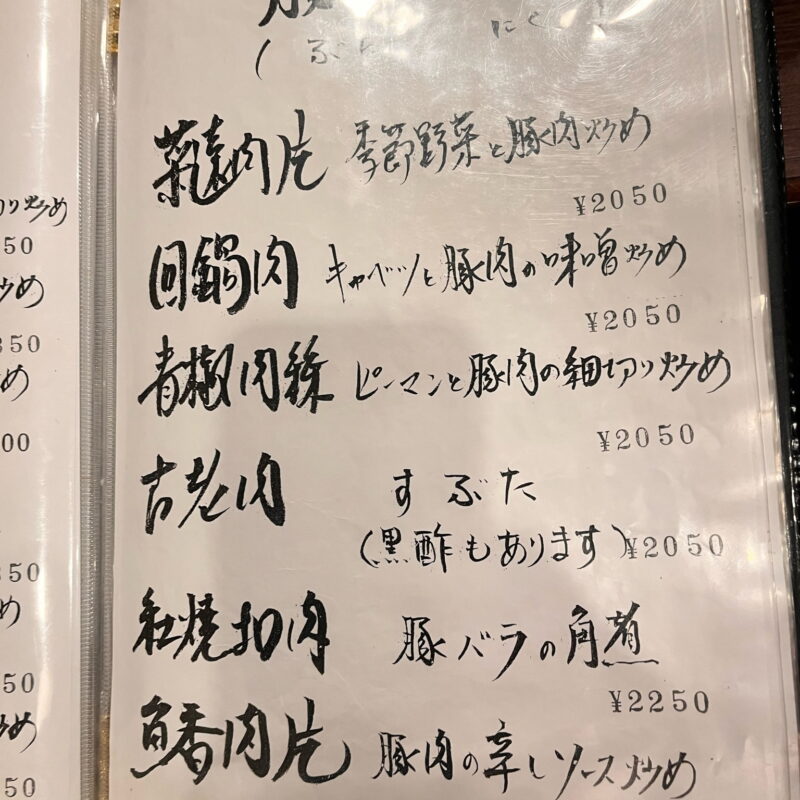 (ぶた にく
菜遠肉片 季節野菜と豚肉炒め
¥2050
回鍋肉 キャベツと豚肉の味噌炒め
¥2050
青椒肉絲 ピーマンと豚肉の細切り炒め
¥2050
古老肉 すぶた
(黒酢もあります) ¥2050
紅焼扣肉 豚バラの角煮
¥2250
魚香肉片 豚肉の辛しソース炒め
切り炒め
50
炒め
350
め
00
350
め
50
炒め
50